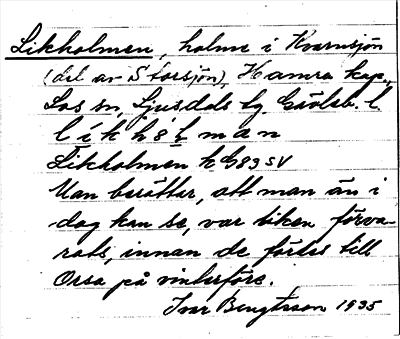 Likholmen, holme i Kvarnsjön
(del av Storsjön), Hamra kap.,
Los sn, Ljusdals tg, Gävleb. l.
l i k h o l m a n
Likholmen k G83 SV
Man berättar, att man än i
dag kan se, var liken förva-
rats, innan de förtes till
Orsa på vinterföre.
Ivar Bengtsson 1935